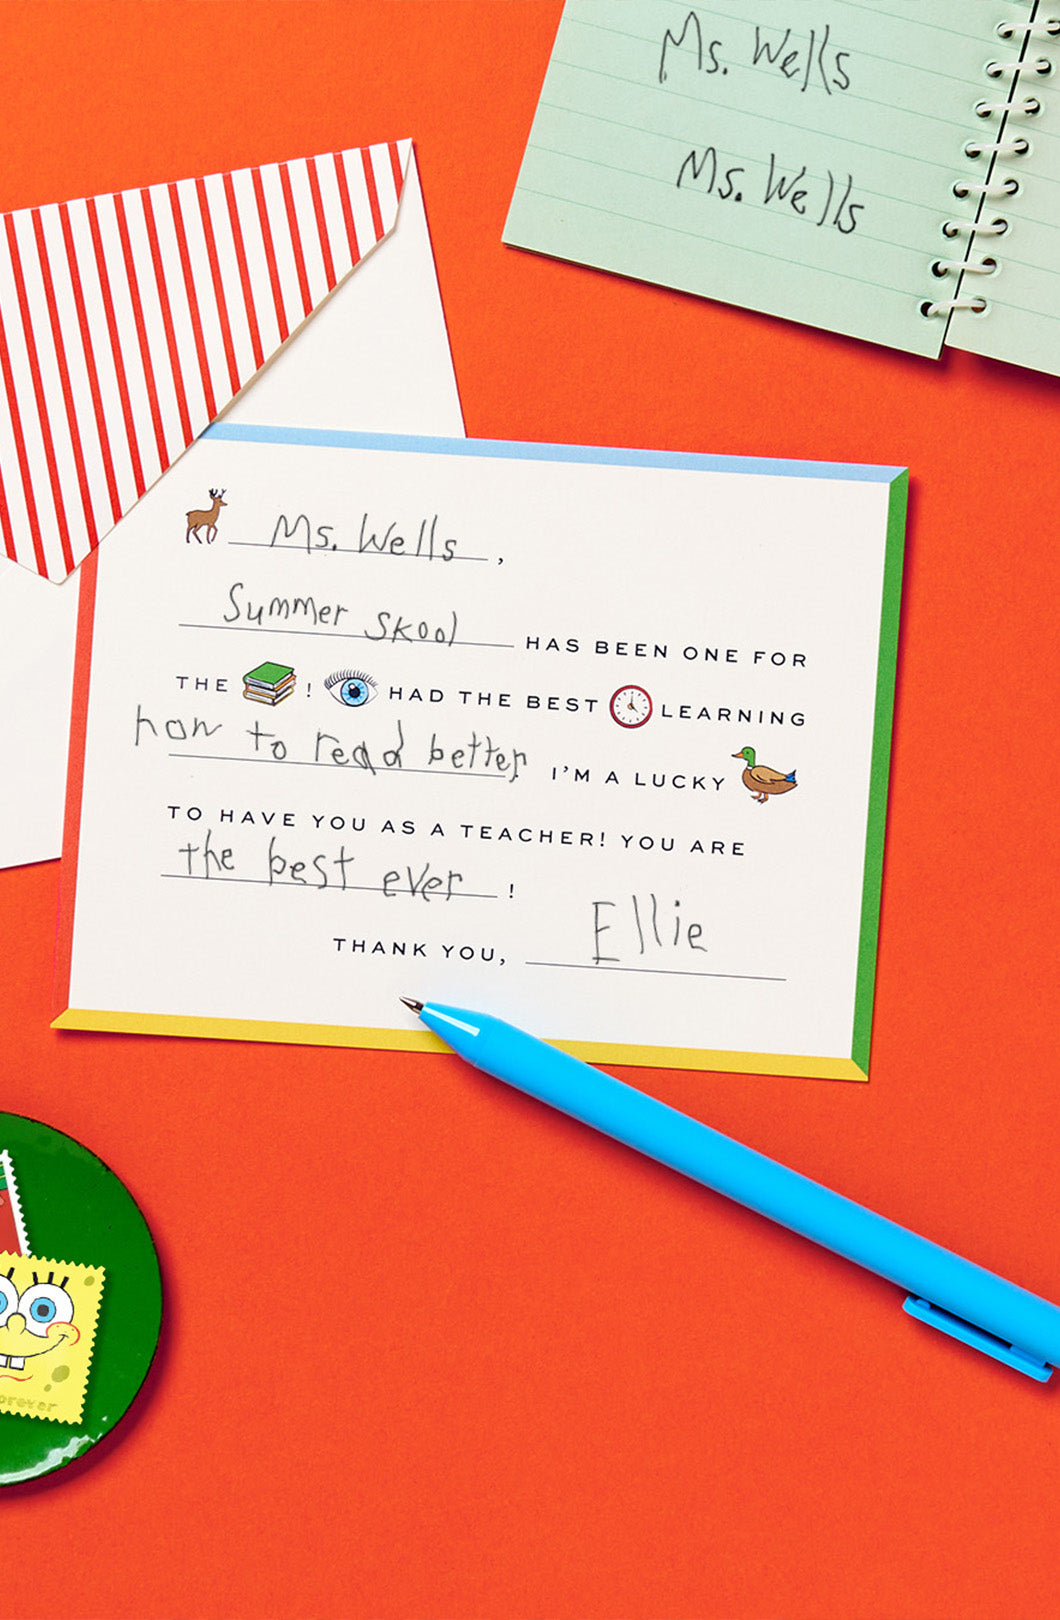 Ms. Wells
Ms. Wells
Ms. Wells,
Summer Skool HAS BEEN ONE FOR
THE ! HAD THE BEST LEARNING
how to read better I'M A LUCKY
TO HAVE YOU AS A TEACHER! YOU ARE
the best ever!
Ellie
THANK YOU,
orever